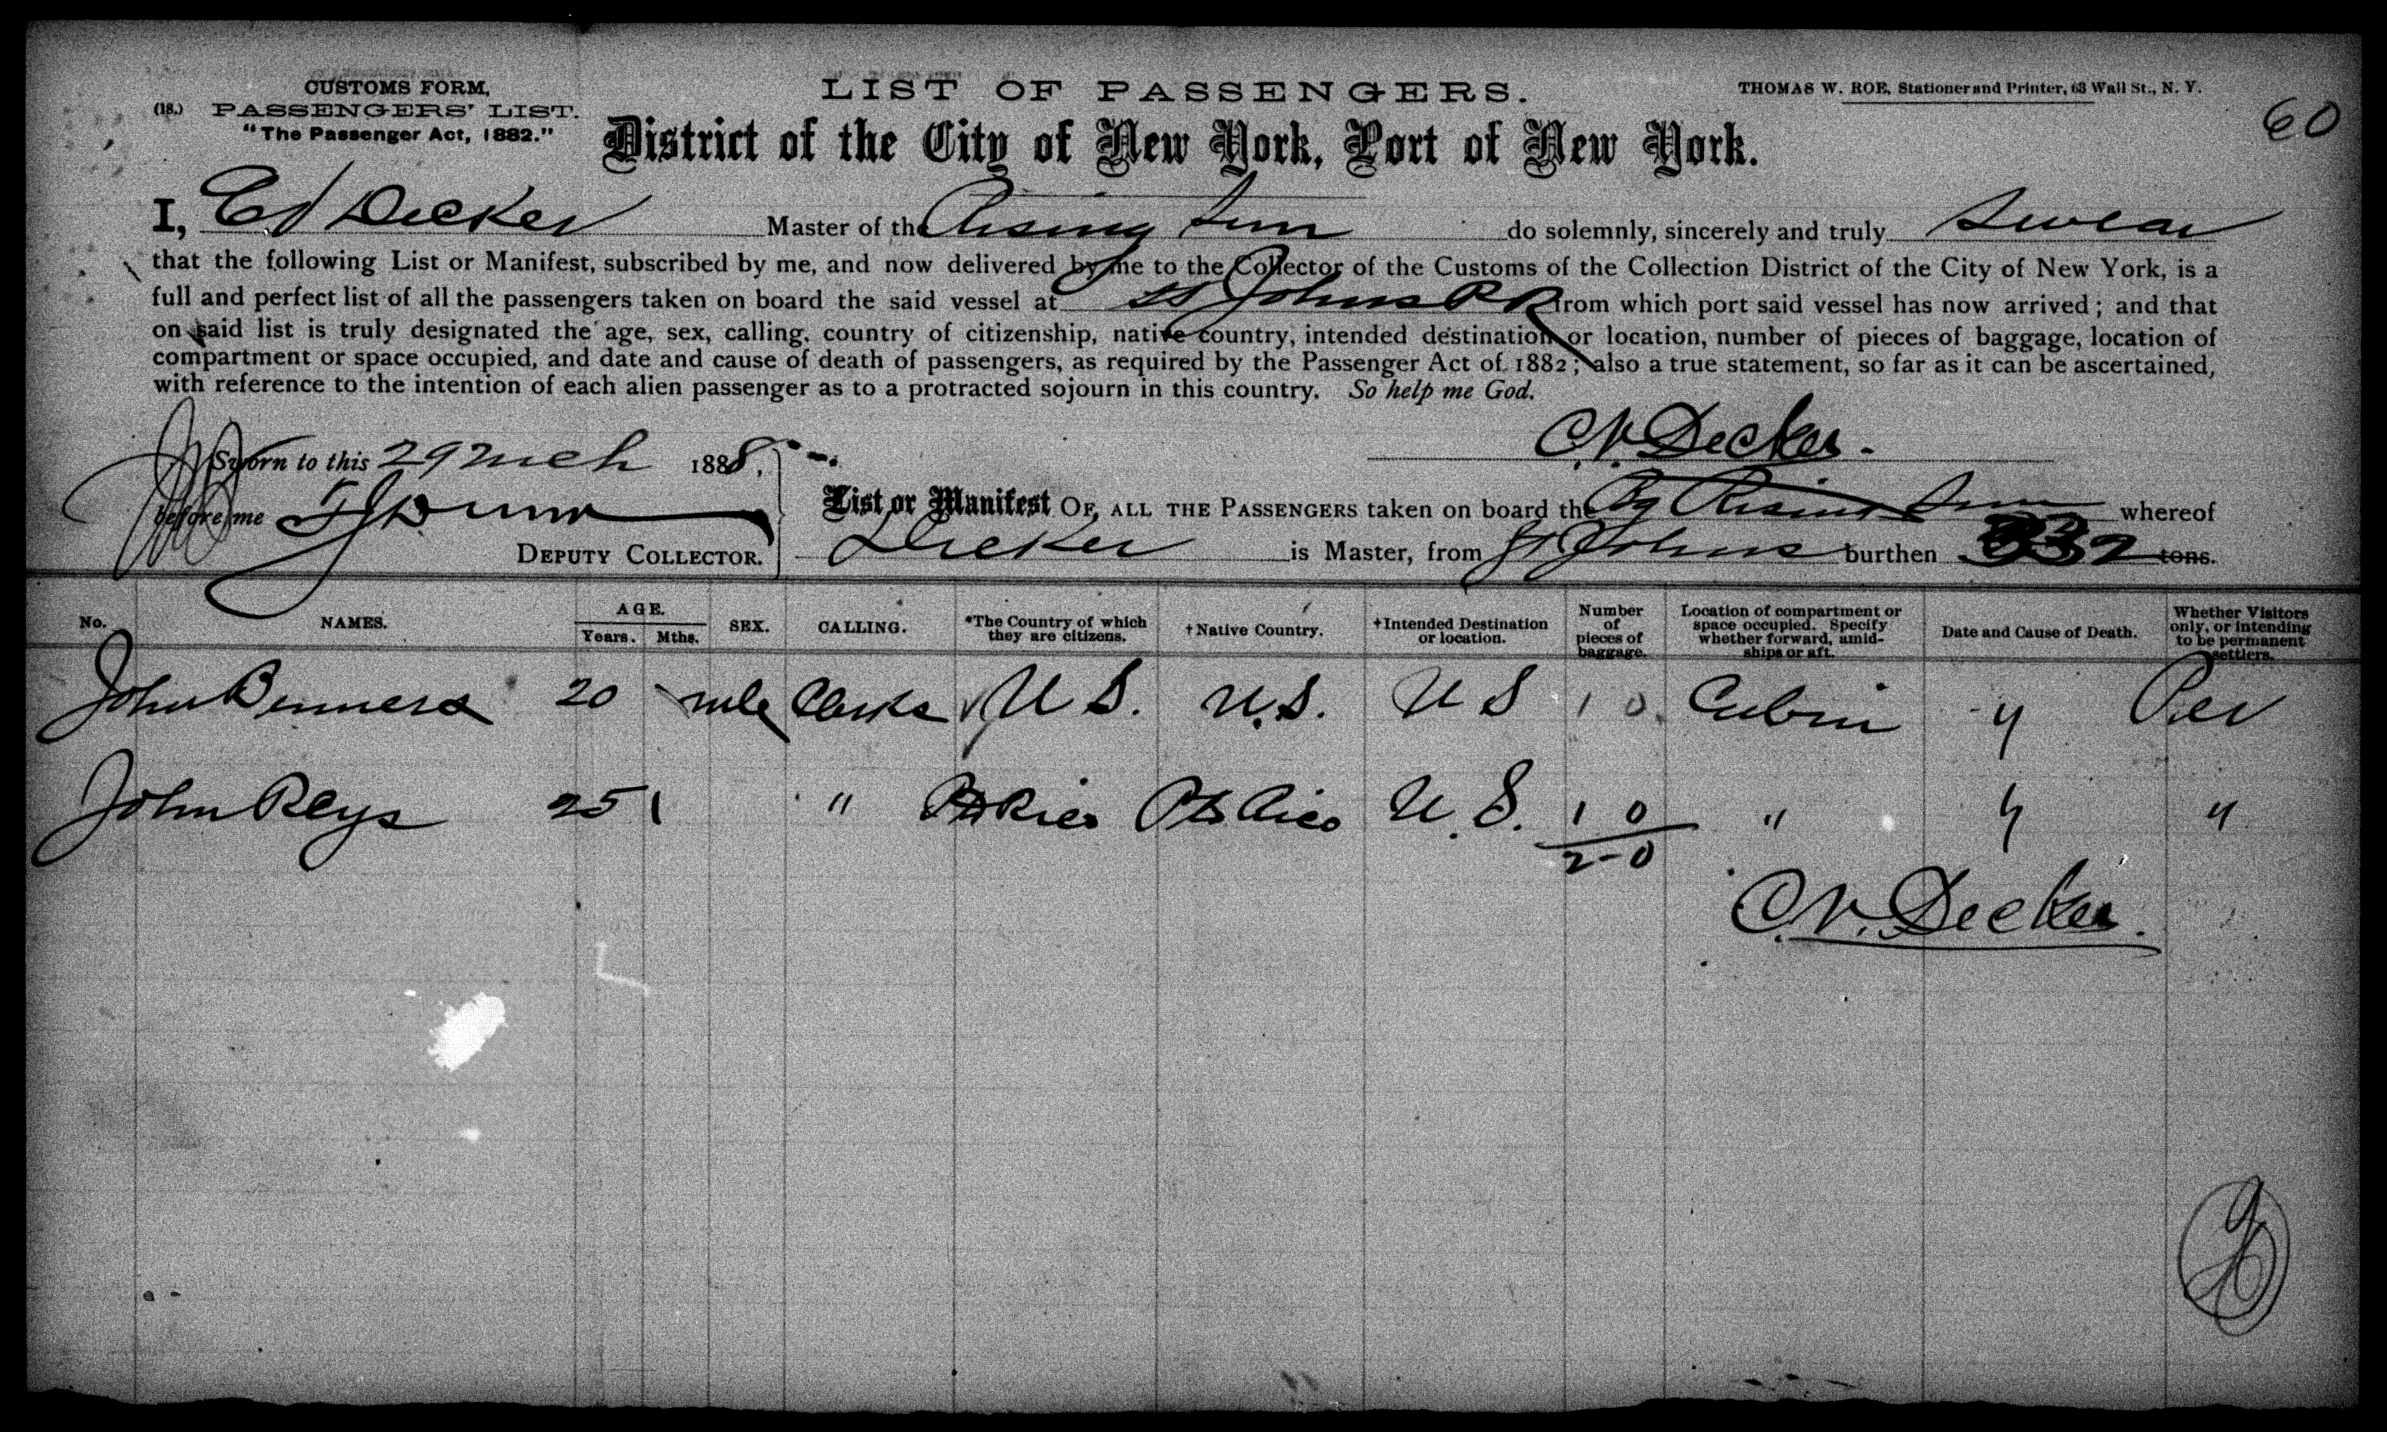 CUSTOMS FORM,
(18.) PASSENGERS' LIST.
"The Passenger Act, 1882."
LIST OF PASSENGERS.
THOMAS W. ROE, Stationer and Printer, 63 Wall St., N. Y.
60
District of the City of New York, Port of New York.
I, Ed Decker Master of the Rising Sun do solemnly, sincerely and truly swear
that the following List or Manifest, subscribed by me, and now delivered by me to the Collector of the Customs of the Collection District of the City of New York, is a
full and perfect list of all the passengers taken on board the said vessel at St Johns P R from which port said vessel has now arrived; and that
on said list is truly designated the age, sex, calling, country of citizenship, native country, intended destination or location, number of pieces of baggage, location of
compartment or space occupied, and date and cause of death of passengers, as required by the Passenger Act of 1882; also a true statement, so far as it can be ascertained,
with reference to the intention of each alien passenger as to a protracted sojourn in this country. So help me God.
C.V. Decker.
Sworn to this 29 Mch 1888.
before me
DEPUTY COLLECTOR.
List or Manifest OF ALL THE PASSENGERS taken on board the Bg Rising Sun whereof
Decker is Master, from St Johns burthen 332 tons.
No. NAMES. AGE. Years. Mths. SEX. CALLING. *The Country of which they are citizens. †Native Country. †Intended Destination or location. Number of pieces of baggage. Location of compartment or space occupied. Specify whether forward, amidships or aft. Date and Cause of Death. Whether Visitors only, or intending to be permanent settlers.
John 20 male Clerks U S. U.S. U S 1 0 Cabin " Per
John Reys 25 " Pto Rico Pto Rico U.S. 1 0 " " "
2-0
C.V. Decker.